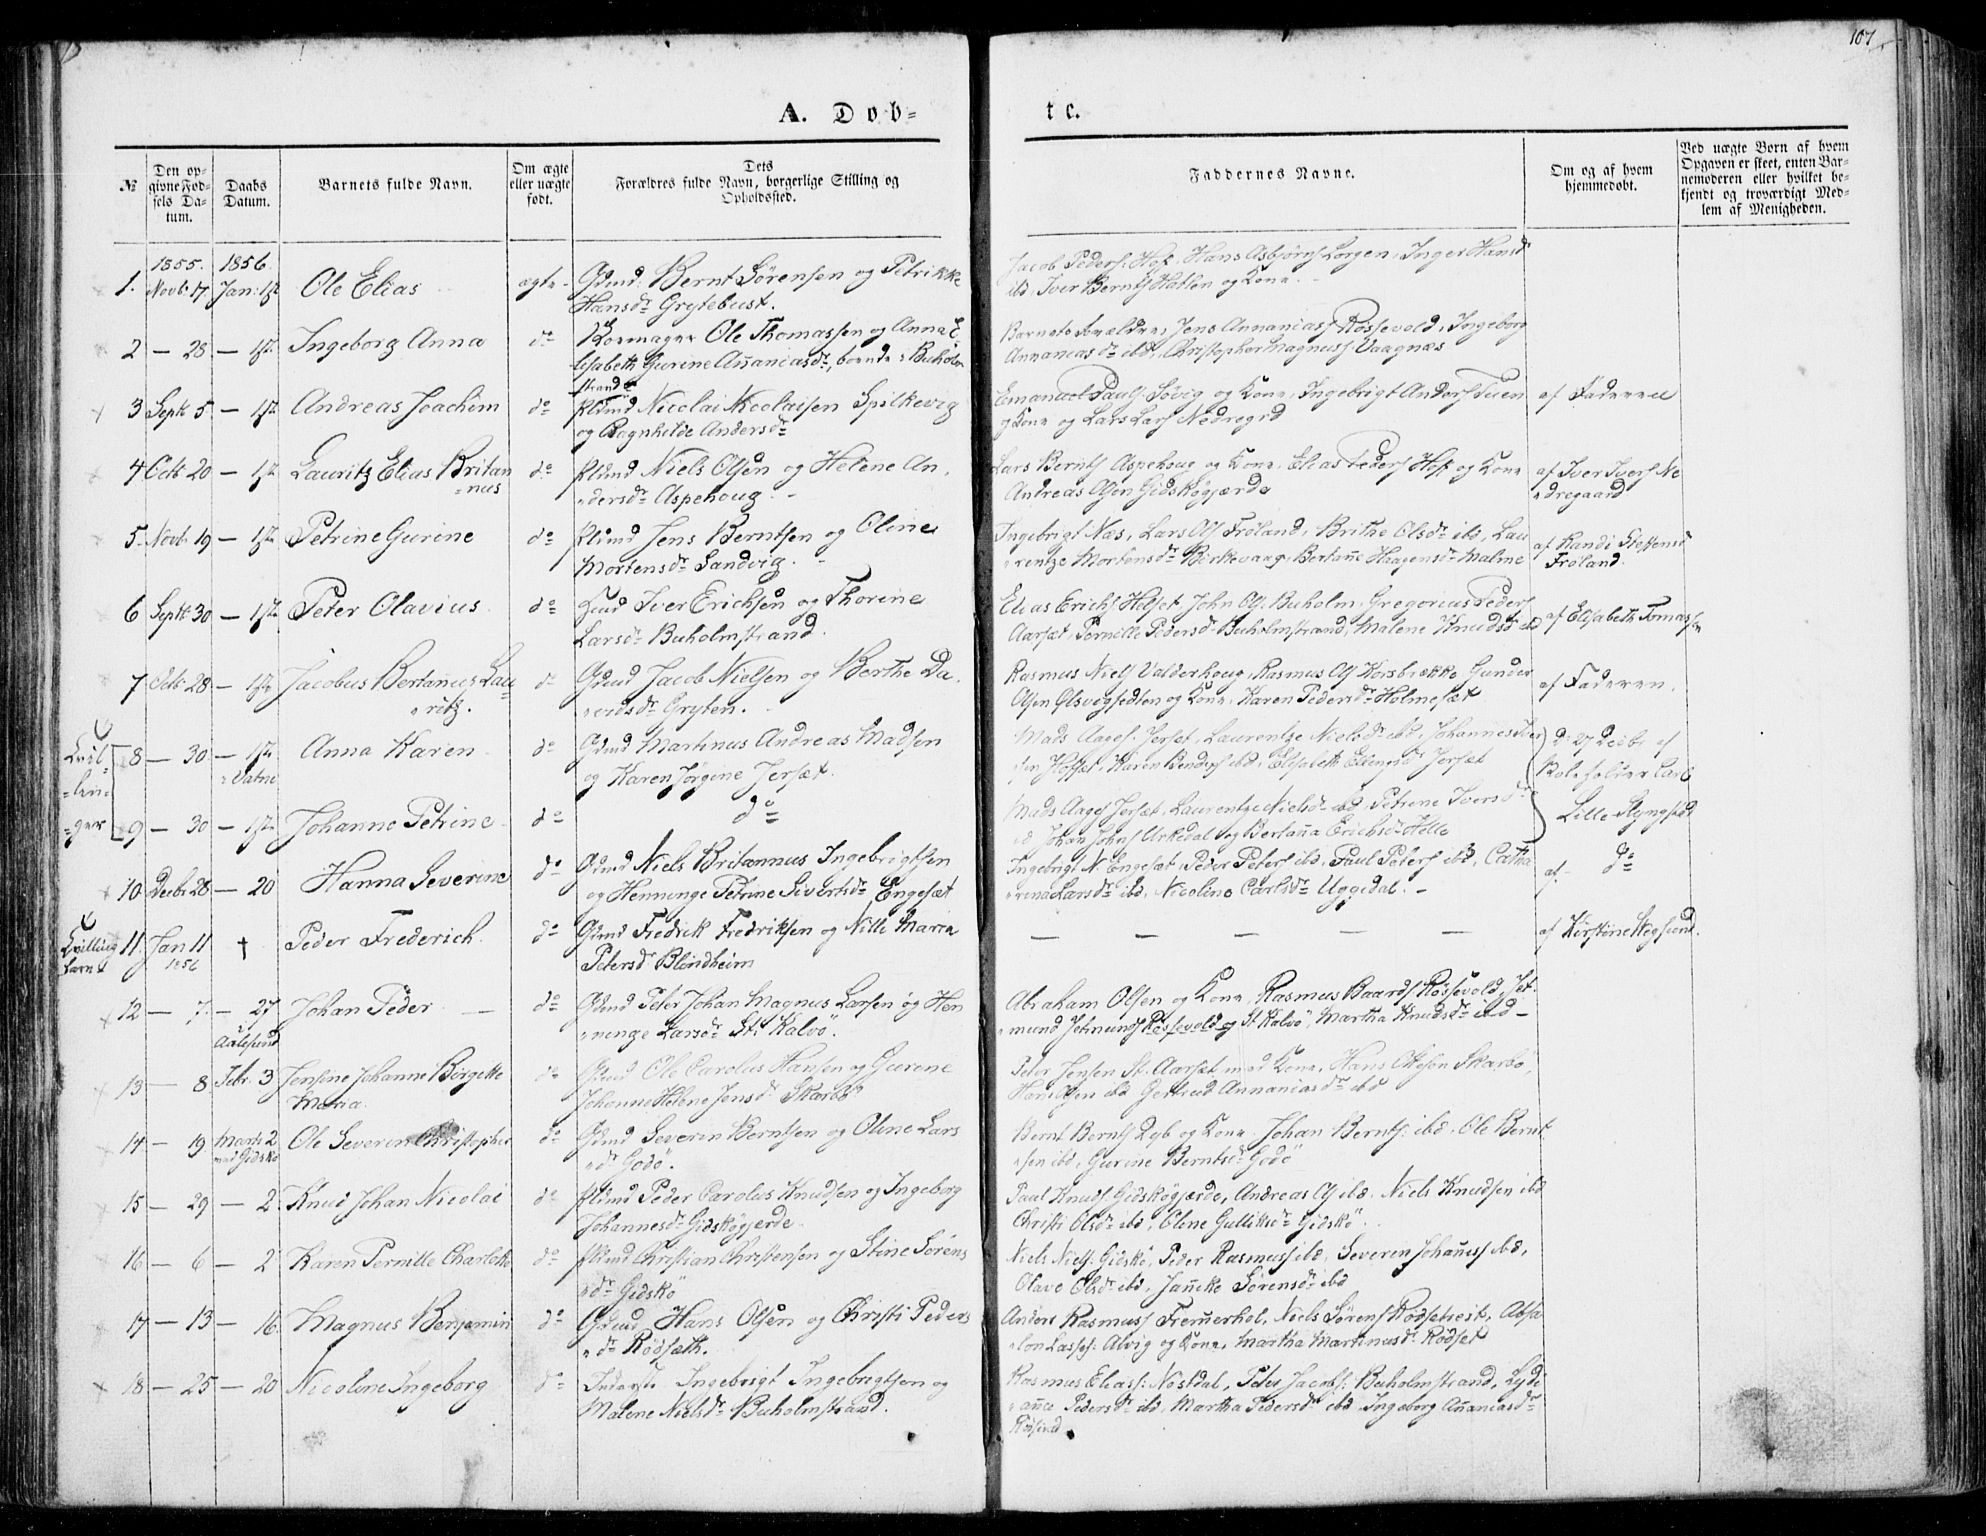 107
A. Døb-
te.
№
Den op-
givne Fød-
sels Da-
tum.
Daabs
Datum.
Barnets fulde Navn.
Om ægte
eller uægte
født.
Dets
Forældres fulde Navn, borgerlige Stilling og
Opholdssted.
Faddernes Navne.
Om og af hvem
hjemmedøbt.
Ved uægte Børn af hvem
Opgaven er skeet, enten Bar-
nemoderen eller hvilket be-
kjendt og troværdigt Med-
lem af Menigheden.
1855. 1856.
1. Novb: 17. Jan: 1ste Ole Elias ægte Gdmd: Bernt Sørensen og Petrikke
Hansdr Grytebust.
Jacob Peders: Hof, Hans Asbjørns Lorgen, Inger Hansdr
ibd, Iver Bernts Hatlen og Kone.
2 — 28 — 1ste Ingeborg Anna do Ole Thomassen og Anna E-
lisabeth Gurine Ananiasdr, boende Buholm
strand
Barnets Forældre, Jens Annaniass Røssevold, Ingeborg
Annaniasdr ibd, Christopher Magnuss Vaagnæs
3 Septb 5 — 1ste Andreas Joachim do Plsmd Nicolai Nicolaisen Spilkevig
og Ragnhilde Andersdr
Emanuel Pauls: Søvig og Kone, Ingebrigt Anders Tuen
og Kone og Lars Lars Nedregrd
af Faderen
4 Octb 20 — 1ste Lauritz Elias Britan
=nus do Plsmd Niels Olsen og Helene An,
dersdr Aspehoug.
Lars Bernts Aspehoug og Kone, Elias Peders Hof og Kone
Andreas Olsen Gidskøgjerde
af Iver Ivers Ne
dregaard
5 Novb 19 — 1ste Petrine Gurine do Plsmd Jens Berntsen og Oline
Mortensdr Sandvig.
Ingebrigt Næs, Lars Ols Frøland, Brithe Olsdr ibd, Lau
rentze Mortensdr Birkevaag, Bertane Haagensdr Malme
af Randi Steffensd
Frøland.
6 Septb 30 — 1ste Peter Olavius do Iver Erichsen og Thorine
Larsdr Buholmstrand.
Elias Erichs Helset, John Ols Buholm, Gregorius Peders
Aarset, Pernille Pedersdr Buholmstrand, Malene Knudsd ibd
af Elisabeth Tomassen
7 Octb 28 — 1ste Jacobus Bertanus Lau
ritz. do Gdmd Jacob Nielsen og Berthe Da,
vidsdr Gryten.
Rasmus Niels Valderhoug, Rasmus Ols Korsbrække Gunder
Olsen Olsvigsedlen og Kone, Karen Pedersdr Holmeset
af Faderen.
Tvil-
-lin-
-ger
8 — 30 — 1ste Anna Karen do Gdmd Martinus Andreas Madsen
Vatne og Karen Jørgine Jerset.
Mads Aages: Jerset, Laurentze Nielsdr ibd, Johannes
Hofset, Karen ibd, Elisabeth Ellingsdr Jerset
D: 27 Decbr af
Skoleholder Carl
Lille Slyngstad
9 — 30 — 1ste Johanne Petrine do do
Mads Aages Jerset, Laurentze Nielsdr ibd, Petrine Iversdr
ibd Johan Johns Urkedal og Bertanna Erichsdr Helle
10 Decbr 28 — 20 Hanna Severine do Gdmd Niels Britannus Ingebrigtsen
og Henninge Petrine Sivertsdr Engeset
Ingebrigt N. Engeset, Peder Peters ibd, Paul Peters ibd, Catha
rina Larsdr ibd, Nicoline Carlsdr Uggedal. —
af do
Tvilling
barn
11 Jan 11 † Peder Frederich. do Gdmd Fredrik Fredriksen og Nille Maria
1856 Petersdr Blindheim
— — — — —
af Kirstine Hegsund.
12 — 7. — 27 Johan Peder — do Gdmd Peter Johan Magnus Larsen og Hen
Aalesund ninge Larsdr St: Kalvø.
Abraham Olsen og Kone, Rasmus Baards Røssevold, Jet-
mund Jetmunds Røssevold og St Kalvø, Martha Knudsdr ibd —
13 — 8 Febr. 3 Jensine Johanne Birgitte
Maria. do Gdmd Ole Carolus Hansen og Gurine
Johanne Helene Jensdr Skarbø
Peter Jensen St. Aarset med Kone, Hans Ottesen Skarbø,
ibd Gertrud Annaniasdr ibd
14 — 19 Marts 2 Ole Severin Christopher do Gdmd Severin Berntsen og Oline Lars
Gidskø dr Godø.
Bernt Bernts Dyb og Kone, Johan Bernts: ibd. Ole Bernt
sen ibd, Gurine Berntsdr Godø
15 — 29 — 2 Knud Johan Nicolai do Plsmd Peder Carolus Knudsen og Ingeborg
Johannesdr Gidskøgjerde.
Paul Knuds: Gidskøgjerde, Andreas Ols ibd. Niels Knudsen ibd
Christi Olsdr ibd, Oline Gulliksdr Gidskø.
16 — 6 — 2 Karen Pernille Charlotte do Plsmd Christian Christensen og Stine Sørens
dr Gidskø
Niels Niels: Gidskø, Peder Rasmuss ibd, Severin Johaness ibd,
Olave Olsdr ibd, Janike Sørensdr ibd
17 — 13 — 16. Magnus Benjamin do Gdmd Hans Olsen og Christi Peders
dr Rødsæth.
Anders Rasmuss Fremerhol, Niels Sørens Rødsetreit, Absa
lon Lasses: Alvig og Kone, Martha Martinusdr Rødset
18 — 25 — 20 Nicoline Ingeborg do Inderste Ingebrigt Ingebrigtsen og
Malene Nielsdr Buholmstrand.
Rasmus Elias: Nostdal, Peter Jacobs: Buholmstrand, Lydi
anne Pedersdr ibd, Martha Pedersdr ibd, Ingeborg Ananiasdr